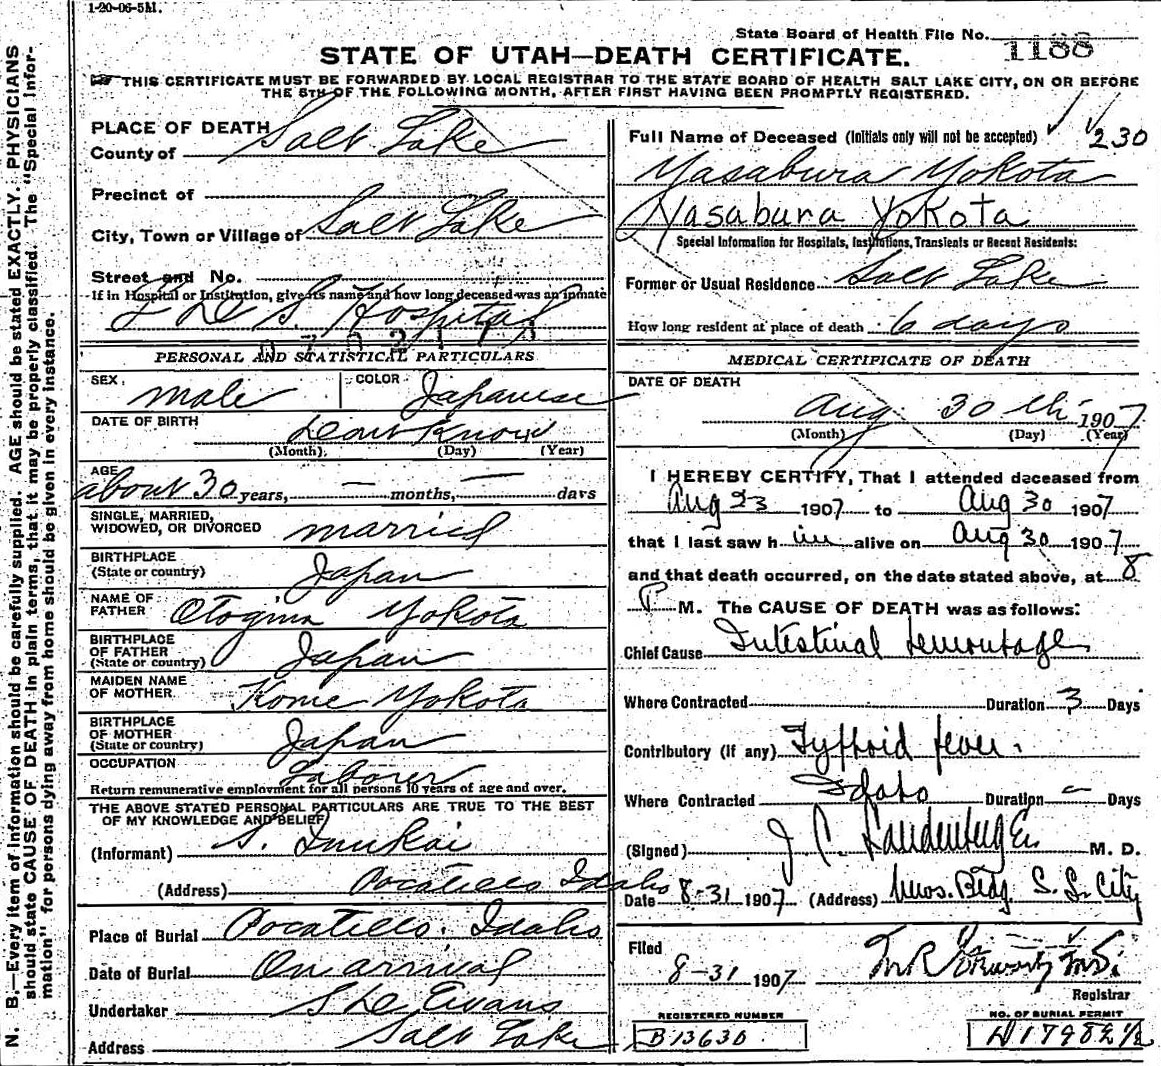 1-20-06-5M.
State Board of Health File No. 1188
STATE OF UTAH—DEATH CERTIFICATE.
THIS CERTIFICATE MUST BE FORWARDED BY LOCAL REGISTRAR TO THE STATE BOARD OF HEALTH SALT LAKE CITY, ON OR BEFORE
THE 5TH OF THE FOLLOWING MONTH, AFTER FIRST HAVING BEEN PROMPTLY REGISTERED.
N. B.—Every item of information should be carefully supplied. AGE should be stated EXACTLY. PHYSICIANS
should state CAUSE OF DEATH in plain terms, that it may be properly classified. The "Special Infor-
mation" for persons dying away from home should be given in every instance.
PLACE OF DEATH
County of Salt Lake
Precinct of
City, Town or Village of Salt Lake
Street and No.
If in Hospital or Institution, give its name and how long deceased was an inmate
L D S Hospital
PERSONAL AND STATISTICAL PARTICULARS
SEX: male
COLOR Japanese
DATE OF BIRTH
Dont Know
(Month) (Day) (Year)
AGE
about 30 years, — months, — days
SINGLE, MARRIED,
WIDOWED, OR DIVORCED married
BIRTHPLACE
(State or country) Japan
NAME OF
FATHER Yokota
BIRTHPLACE
OF FATHER
(State or country) Japan
MAIDEN NAME
OF MOTHER Kome Yokota
BIRTHPLACE
OF MOTHER
(State or country) Japan
OCCUPATION
Laborer
Return remunerative employment for all persons 10 years of age and over.
THE ABOVE STATED PERSONAL PARTICULARS ARE TRUE TO THE BEST
OF MY KNOWLEDGE AND BELIEF
(Informant) S.
(Address) Pocatello Idaho
Place of Burial Pocatello. Idaho
Date of Burial On arrival
Undertaker Evans
Address Salt Lake
Full Name of Deceased (Initials only will not be accepted) 230
Yasabura Yokota
Yasabura Yokota
Special Information for Hospitals, Institutions, Transients or Recent Residents:
Former or Usual Residence Salt Lake
How long resident at place of death 6 days
MEDICAL CERTIFICATE OF DEATH
DATE OF DEATH
Aug 30 th 1907
(Month) (Day) (Year)
I HEREBY CERTIFY, That I attended deceased from
Aug 23 1907 to Aug 30 1907
that I last saw h im alive on Aug 30 1907
and that death occurred, on the date stated above, at 8
P M. The CAUSE OF DEATH was as follows:
Chief Cause Intestinal hemorrhage
Where Contracted Duration 3 Days
Contributory (if any) Typhoid fever.
Where Contracted Idaho Duration — Days
(Signed) J C. Landenberger M. D.
Date 8-31 1907 (Address) Bldg. S. L. City
Filed
8-31 1907
Registrar
REGISTERED NUMBER
B13630
NO. OF BURIAL PERMIT